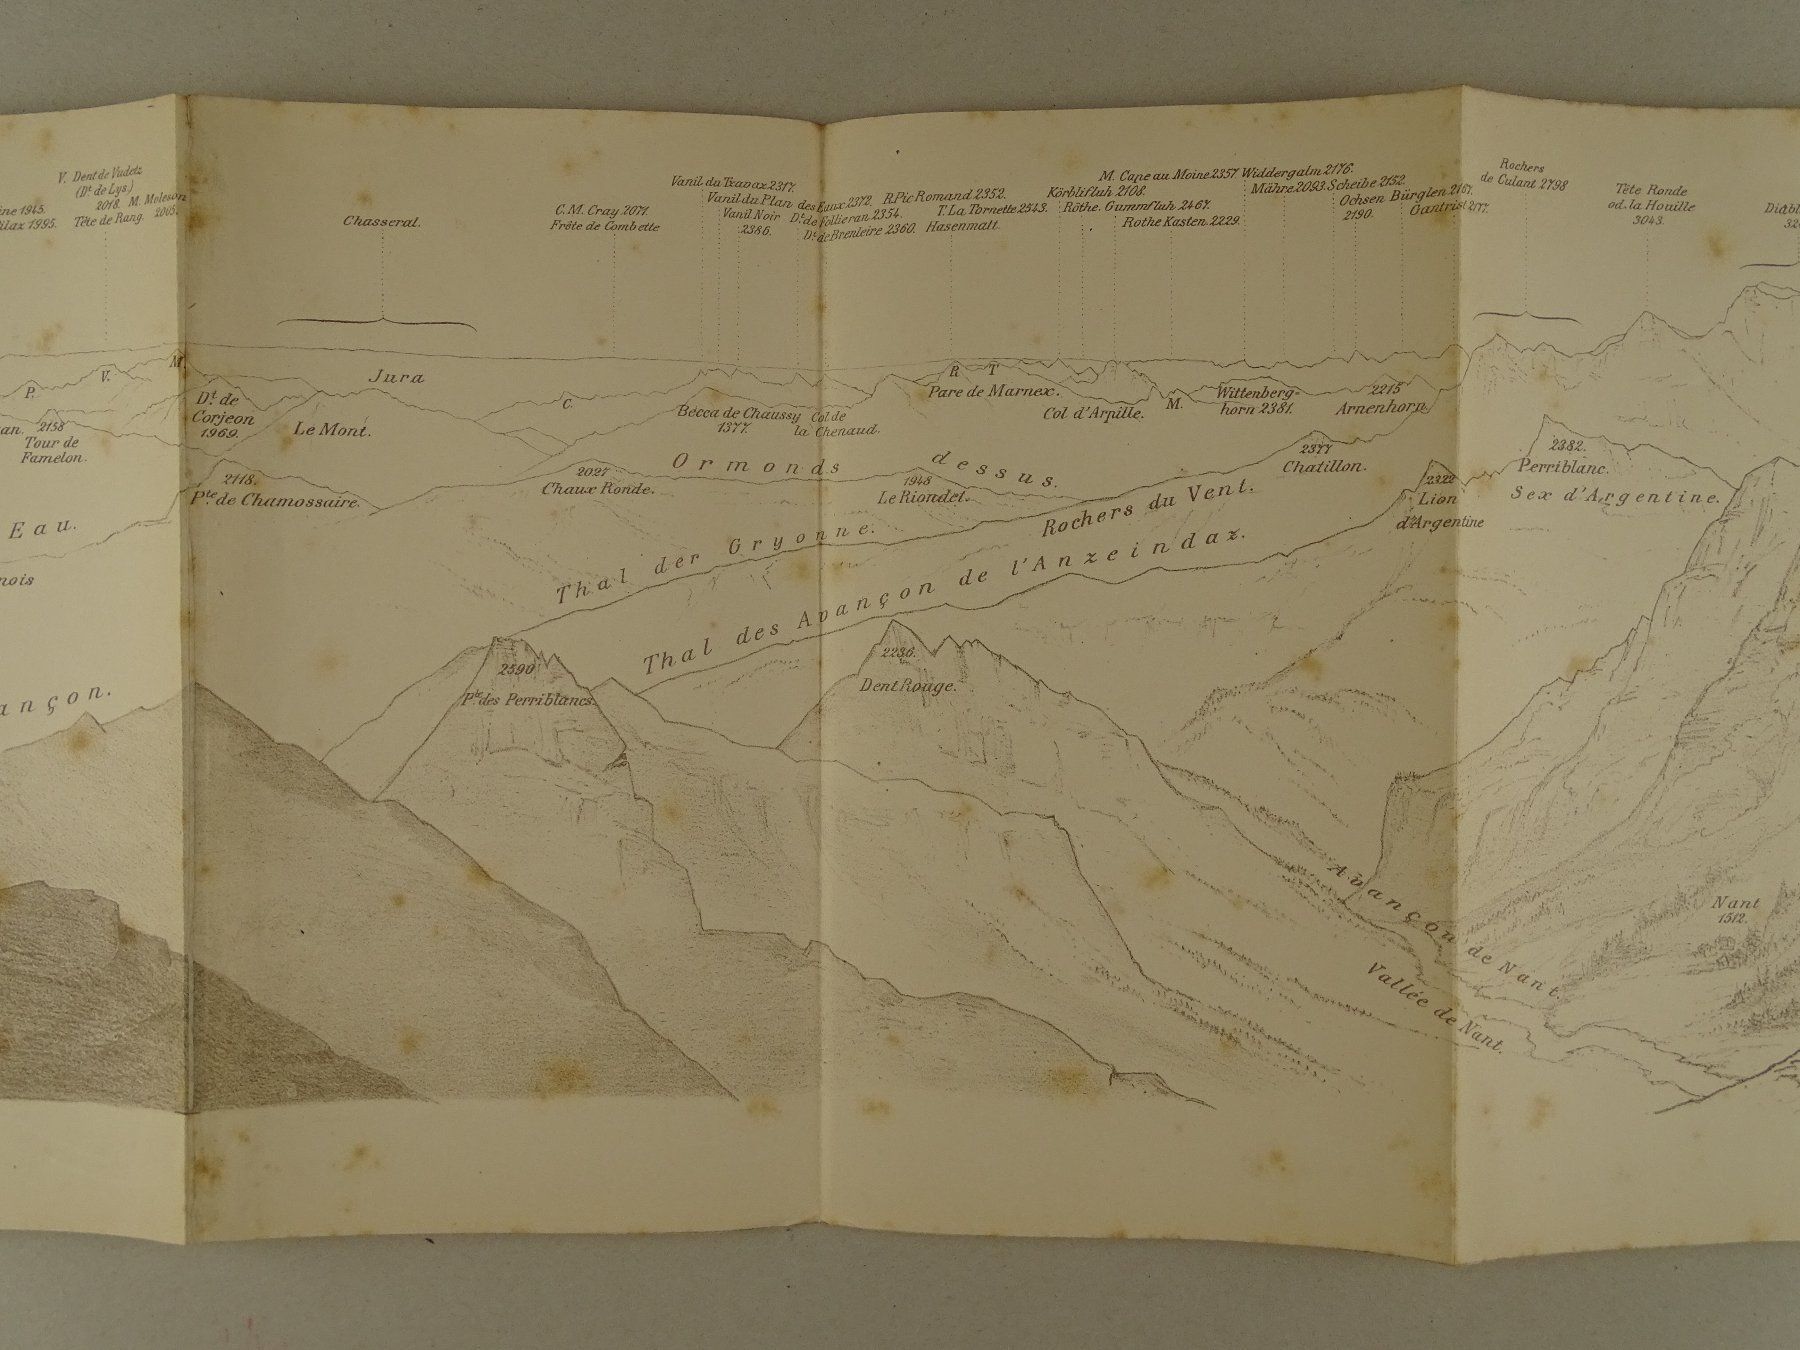 V. Dent de Vudetz
(Dt. de Lys.)
2018. M. Moleson
Tête de Rang. 2005.
1945.
1995.
Chasseral.
C. M. Cray 2071.
Frête de Combette
Vanil du Travax 2317.
Vanil du Plan des Eaux 2372.
Vanil Noir
2386.
Dt. de Follieran 2354.
Dt. de Brenleire 2360.
R. Pic Romand 2352.
T. La Tornette 2543.
Hasenmatt.
M. Cape au Moine 2357.
Körblifluh 2108.
Röthe. Gummfluh 2467.
Rothe Kasten 2229.
Widdergalm 2176.
Mähre 2093. Scheibe 2152.
Ochsen
2190.
Bürglen 2167.
Gantrist 2177.
Rochers
de Culant 2798
Tête Ronde
od. la Houille
3043.
P.
V.
M.
Jura
C.
R T
M.
Dt. de
Corjeon
1969.
Le Mont.
Becca de Chaussy
1377.
Col de
la Chenaud.
Pare de Marnex.
Col d'Arpille.
Wittenberg-
horn 2381.
2215
Arnenhorn
2158
Tour de
Famelon.
2118.
Pte de Chamossaire.
2027
Chaux Ronde.
Ormonds dessus.
1948
Le Riondet.
2377
Chatillon.
2322
Lion
d'Argentine
2382.
Perriblanc.
Sex d'Argentine.
Eau.
Thal der Gryonne.
Rochers du Vent.
Thal des Avançon de l'Anzeindaz.
2590
Pte des Perriblancs.
2236.
Dent Rouge.
Avançon de Nant.
Vallée de Nant.
Nant
1512.